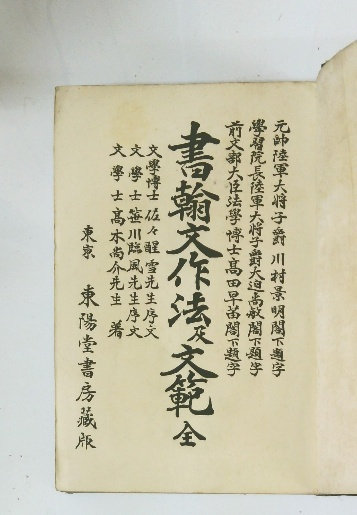 元帥陸軍大將子爵川村景明閣下題字
學習院長陸軍大將子爵大迫尚敏閣下題字
前文部大臣法學博士高田早苗閣下題字
書翰文作法及文範全
文學博士佐々醒雪先生序文
文學士笹川臨風先生序文
文學士高木尚介先生著
東京 東陽堂書房藏版